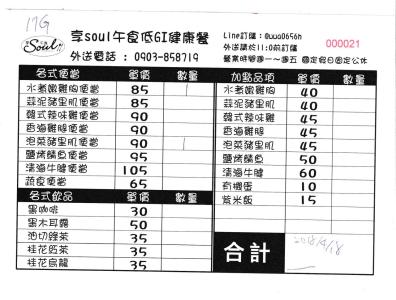 17G
Soul
享soul午食低GI健康餐
外送電話 : 0903-858719
Line訂購 : 0uuo0656h
外送請於11:0前訂購
營業時間週一~週五 國定假日固定公休
000021
各式便當 單價 數量
水煮嫩雞胸便當 85 1
蒜泥豬里肌便當 85
韓式辣味雞便當 90
香滷雞腿便當 90
泡菜豬里肌便當 90 1
鹽烤鯖魚便當 95
清滷牛腱便當 105
蔬食便當 65
各式飲品 單價 數量
黑咖啡 30
黑木耳露 50
油切綠茶 35
桂花紅茶 35
桂花烏龍 35
加點品項 單價 數量
水煮嫩雞胸 40
蒜泥豬里肌 40
韓式辣味雞 45
香滷雞腿 45
泡菜豬里肌 45
鹽烤鯖魚 50
清滷牛腱 60
有機蛋 10
紫米飯 15
合計
2018/4/18